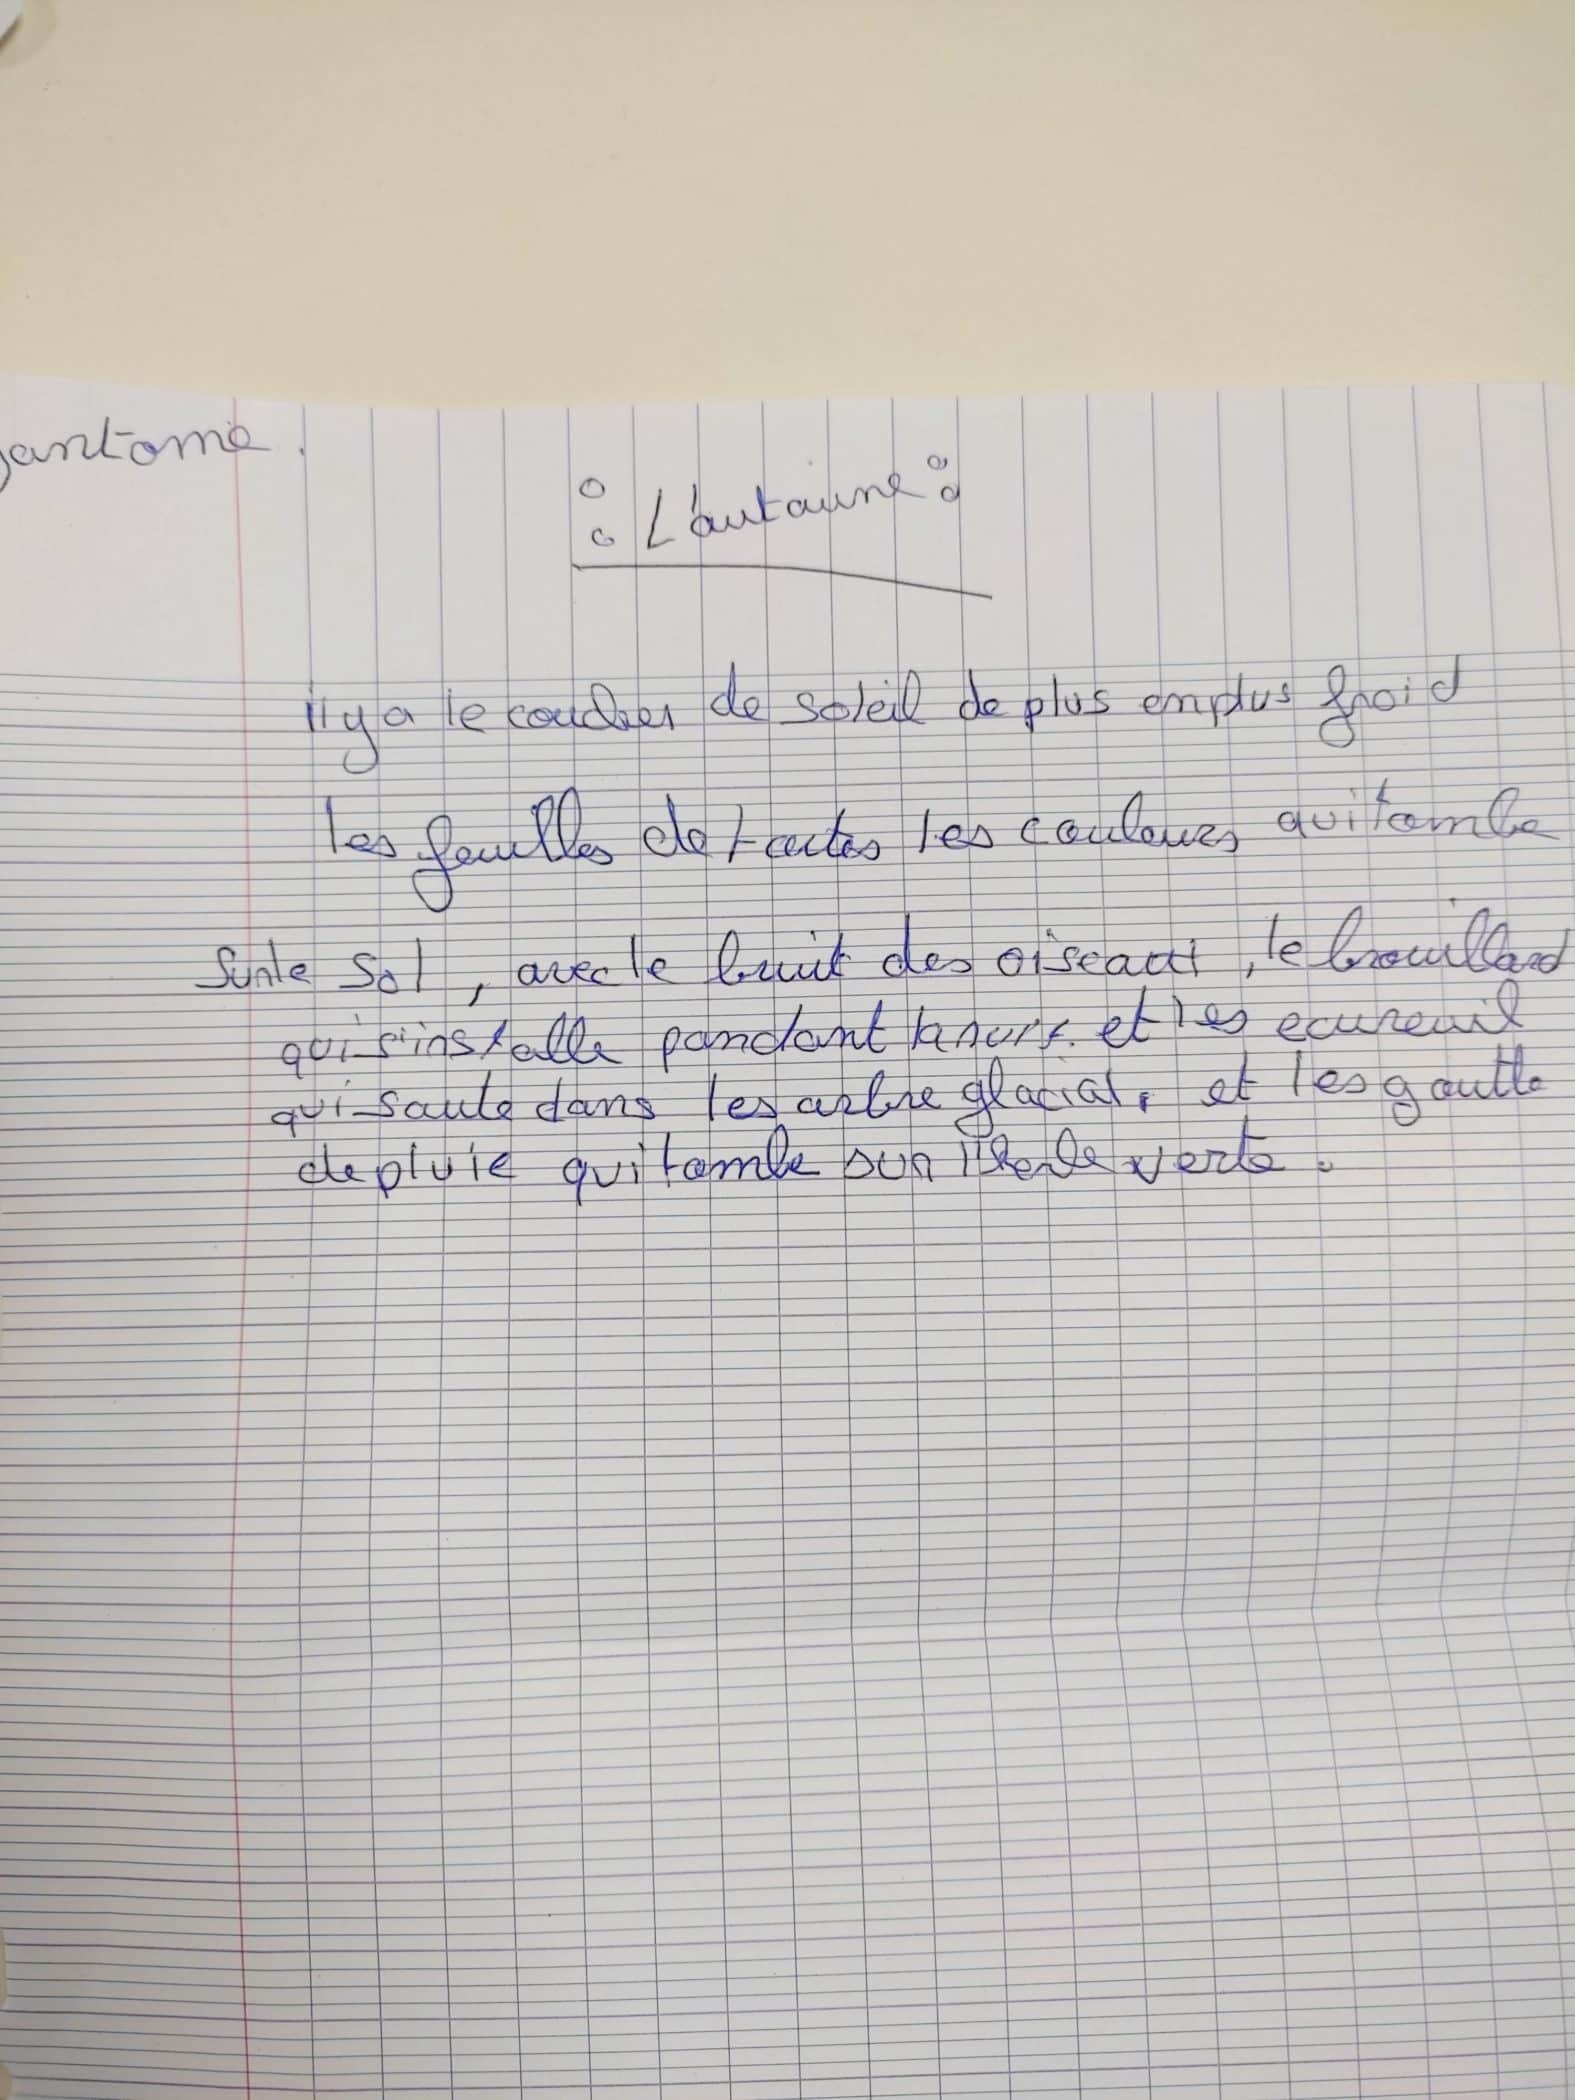 antome.
L'autaune
il y a le coucher de soleil de plus en plus froid
les feuilles de toutes les couleurs qui tombe
sur le sol, avec le bruit des oiseaux, le brouillard
qui s'installe pandant la nuit. et les ecureuil
qui saute dans les arbre glacial, et les goutte
de pluie qui tombe sur l'herbe verte.